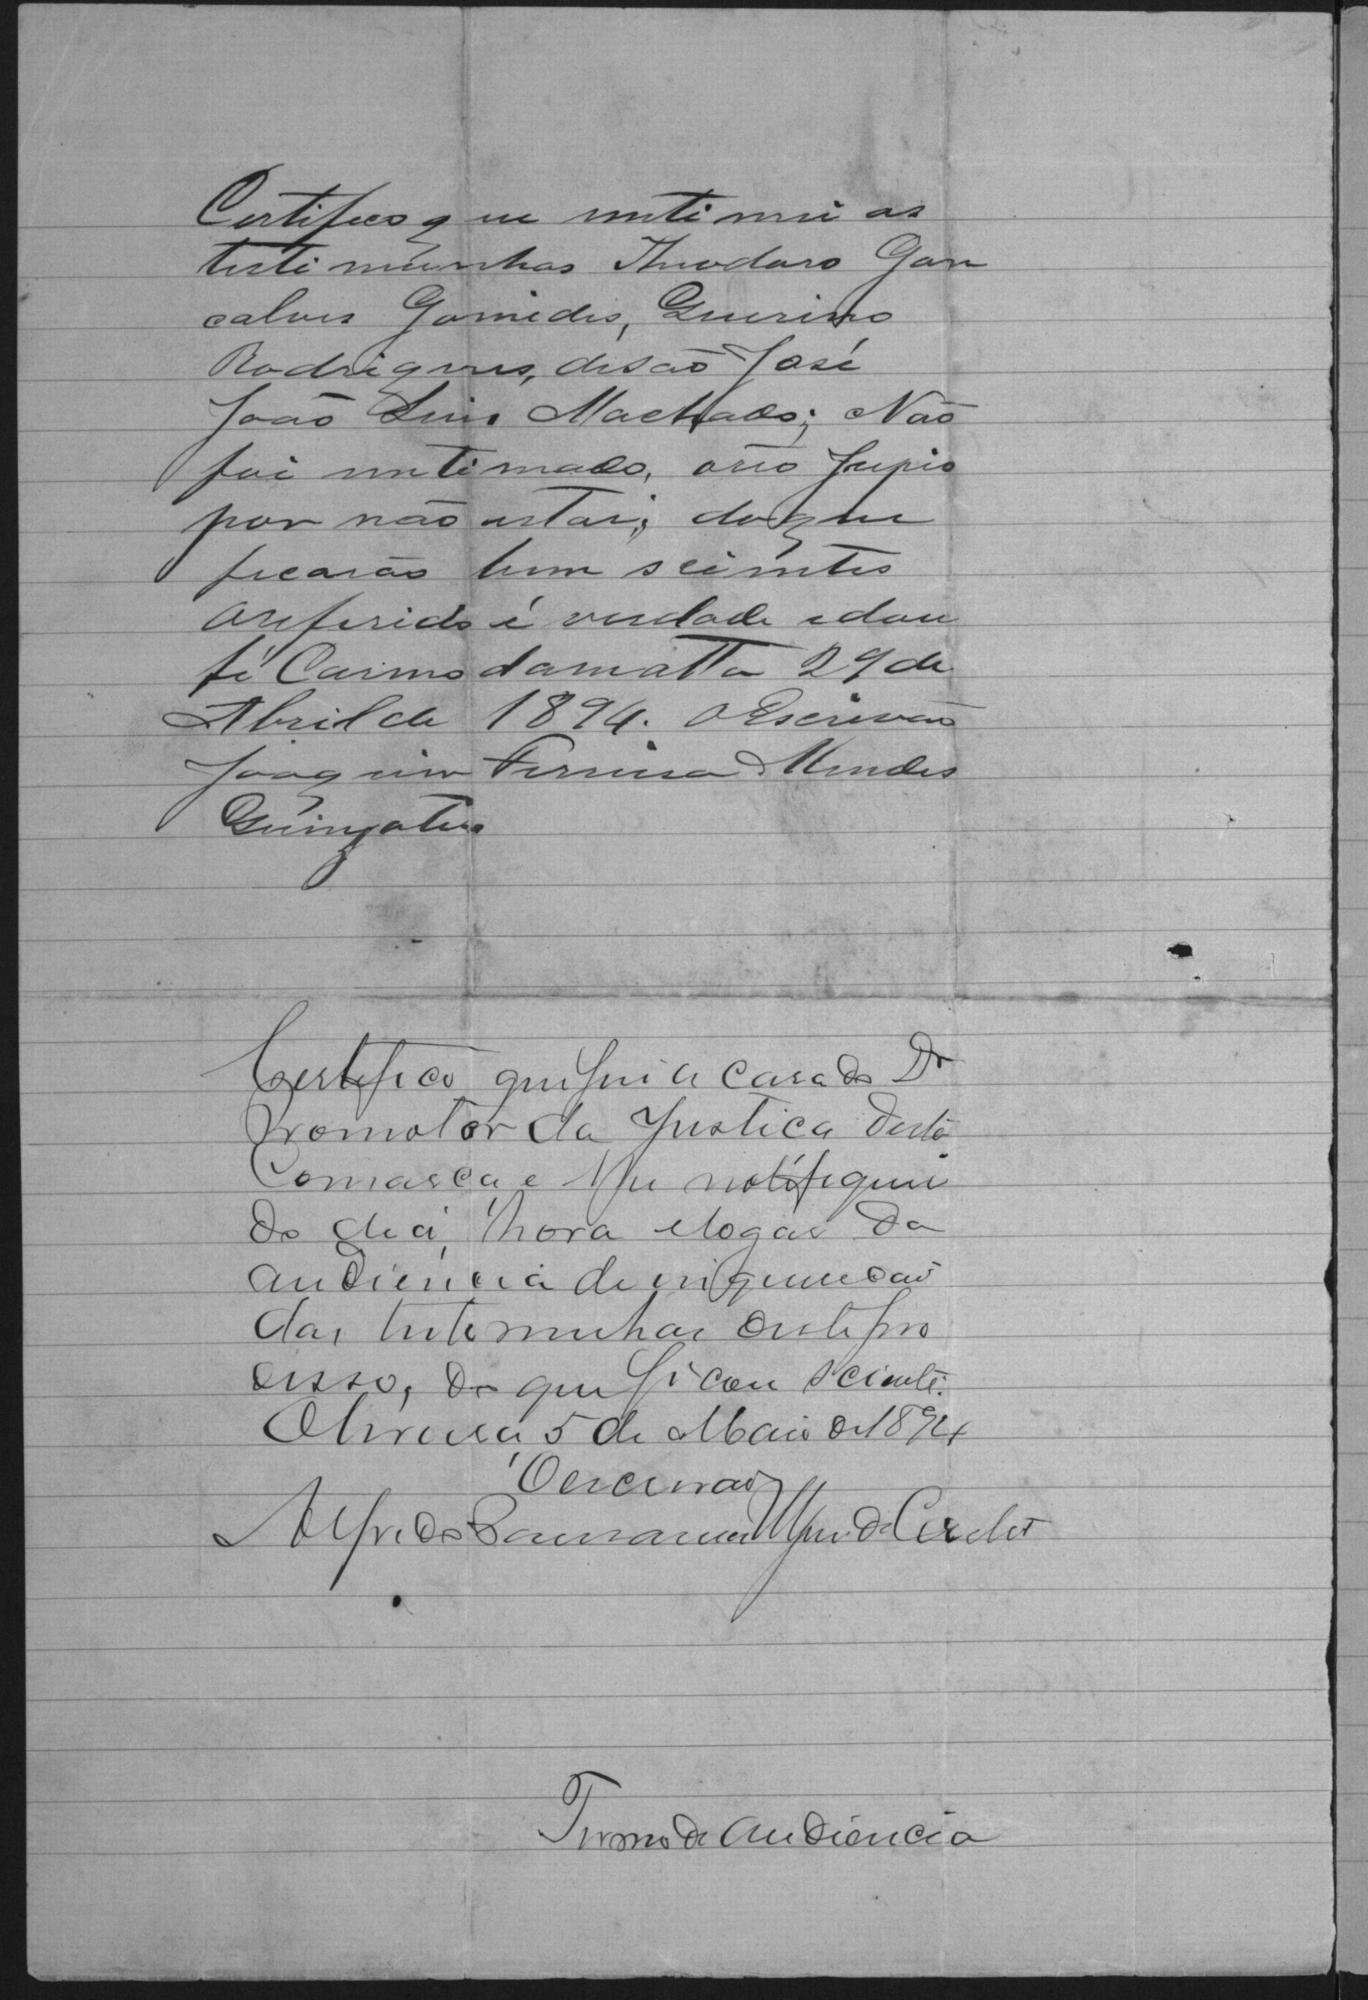 Certifico que intimei as
testimunhas Theodoro Gon
calves Gomides, Querino
Rodrigues, desão José
João Luis Machado; Não
foi intimado, oreo
por não estar; doque
ficarão bem scientes
oreferido é verdade edou
fé Carmo damatta 29 de
Abril de 1894. O Escrivão
Joaquim Ferreira Mendes

Certifico que fui a casa do Dr
Promotor da Justica desta
Comarca e lhe notifiquei
do dia, hora elogar da
audiencia de inquericão
das testemunhas deste pro
cesso, do que ficou sciente.
Oliveira 5 de Maio de 1894
O escrivão
Alfredo

Termo de audiencia